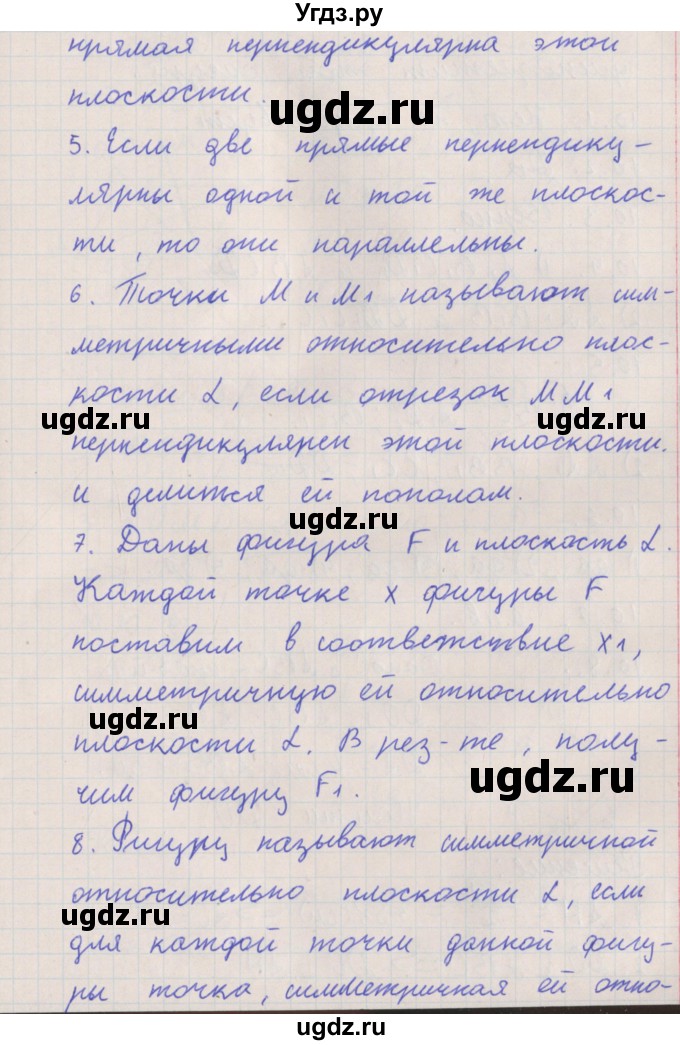 Угдз.ру
прямая перпендикулярна этой
плоскости.
ugdz.ru
5. Если две прямые перпендику-
лярны одной и той же плоскос-
ти, то они параллельны.
6. Точки М и М1 называют сим-
метричными относительно плос-
кости α, если отрезок ММ1
ugdz.ru
ugdz.ru
перпендикулярен этой плоскости.
и делиться ей пополам.
ugdz.ru
7. Даны фигура F и плоскость α.
Каждой точке х фигуры F
поставим в соответствие х1,
симметричную ей относительно
ugdz.ru
плоскости α. В рез-те, полу-
чим фигуру F1.
ugdz.ru
8. Фигуру называют симметричной
относительно плоскости α, если
ugdz.ru
для каждой точки данной фигу-
ры точка, симметричная ей отно-
ugdz.ru